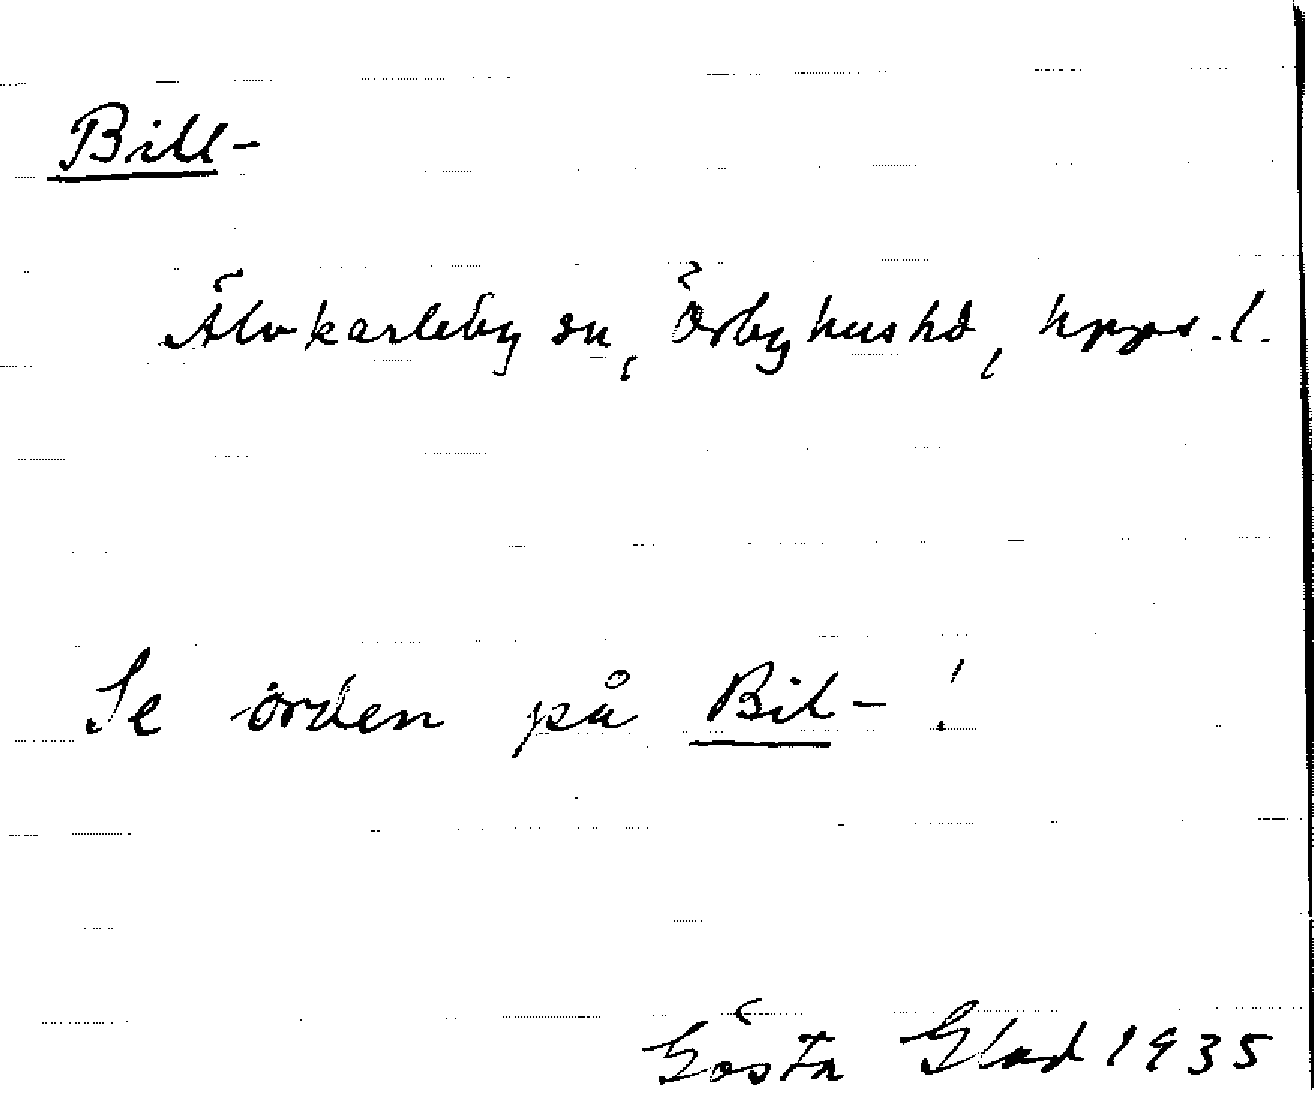 Bill-
Älvkarleby sn, Örbyhus hd, Upps. l.
Se orden på Bil- !
Gösta Glad 1935